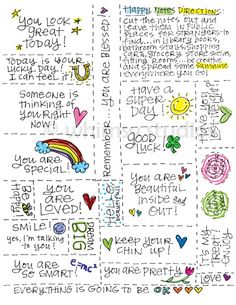 You Look
Great
Today!
Happy Notes Directions:
Cut the notes out and
leave them in public
places for strangers to
find... in library books,
bathroom stalls, shopping
carts, grocery store shelves,
fitting rooms... be creative
and spread some sunshine
everywhere you go!
Today is your
Lucky Day.
I can feel it!
You are Blessed!
Someone is
thinking of
you right
now!
Remember
Have a
super
day
Good
luck
Have
You are
Special!
You are
Loved!
Hello
beautiful!
You are
Beautiful
inside
and
out!
SMILE!
yes, I'm talking
to you!
DREAM
BIG
keep your
chin up!
It's my
You are
so smart!
E=mc²
You are pretty
Everything is going to be OK